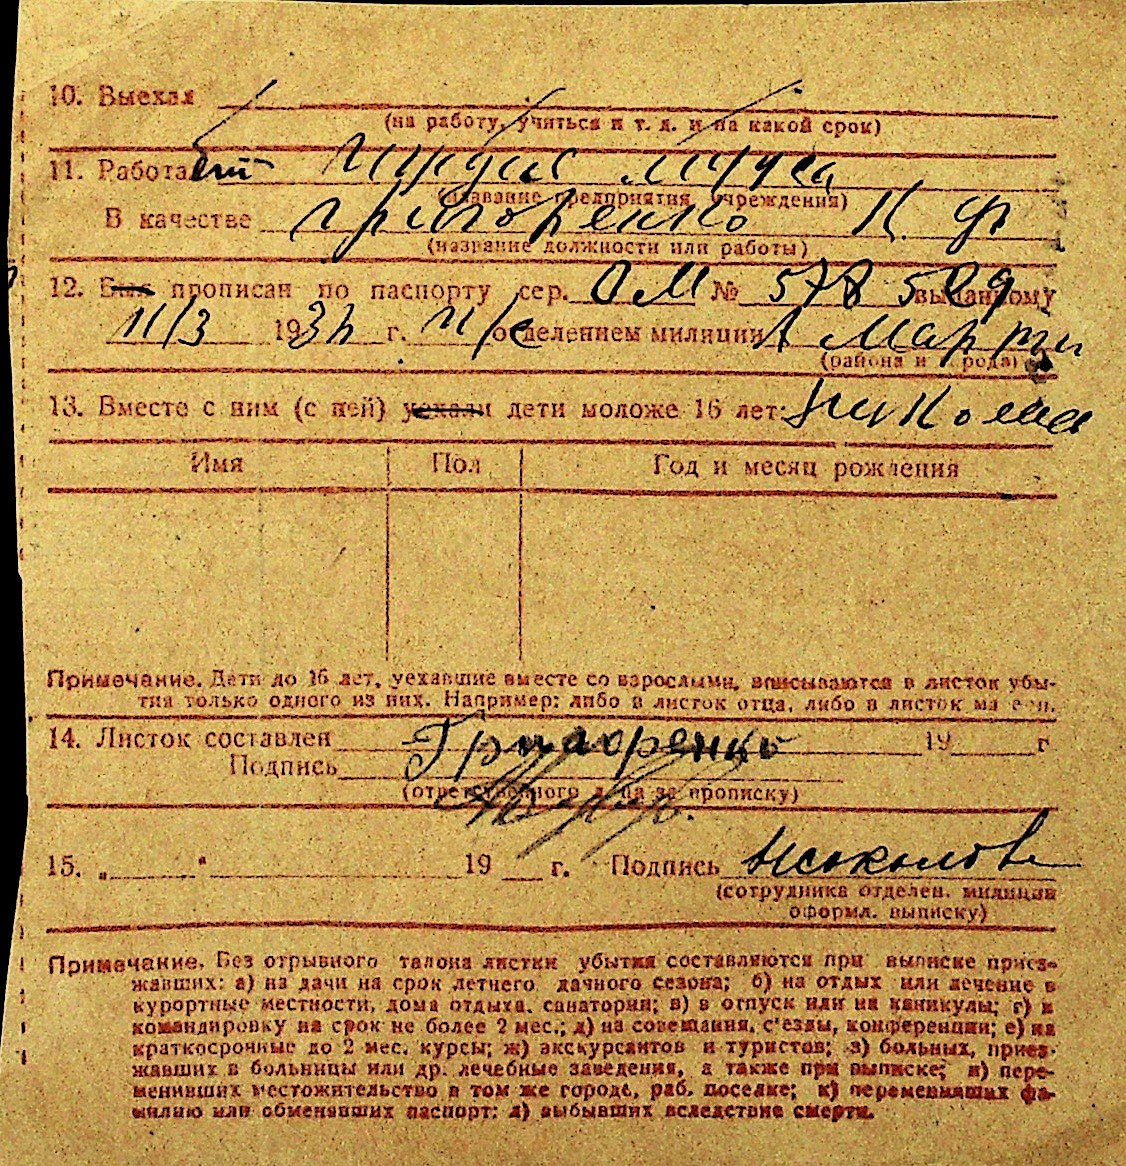 10. Выехал
(на работу, учиться и т. д. и на какой срок)
11. Работает мужа
(название предприятия, учреждения)
В качестве Григоренко Н. Ф
(название должности или работы)
12. Был прописан по паспорту сер. ОМ № 578 509 выданному
11/3 193 г. отделением милиции Марти
(района и города)
13. Вместе с ним (с ней) уехали дети моложе 16 лет: Николаев
Имя Пол Год и месяц рождения
Примечание. Дети до 16 лет, уехавшие вместе со взрослыми, вписываются в листок убы-
тия только одного из них. Например: либо в листок отца, либо в листок матери.
14. Листок составлен Григоренко 19 г
Подпись
(ответственного лица за прописку)
15. „ " 19 г. Подпись
(сотрудника отделен. милиции
оформл. выписку)
Примечание. Без отрывного талона листки убытия составляются при выписке приез-
жавших: а) на дачи на срок летнего дачного сезона; б) на отдых или лечение в
курортные местности, дома отдыха, санатории; в) в отпуск или на каникулы; г) в
командировку на срок не более 2 мес.; д) на совещания, с'езды, конференции; е) на
краткосрочные до 2 мес. курсы; ж) экскурсантов и туристов; з) больных, приез-
жавших в больницы или др. лечебные заведения, а также при выписке; и) пере-
менивших местожительство в том же городе, раб. поселке; к) переменивших фа-
милию или обменявших паспорт; л) выбывших вследствие смерти.